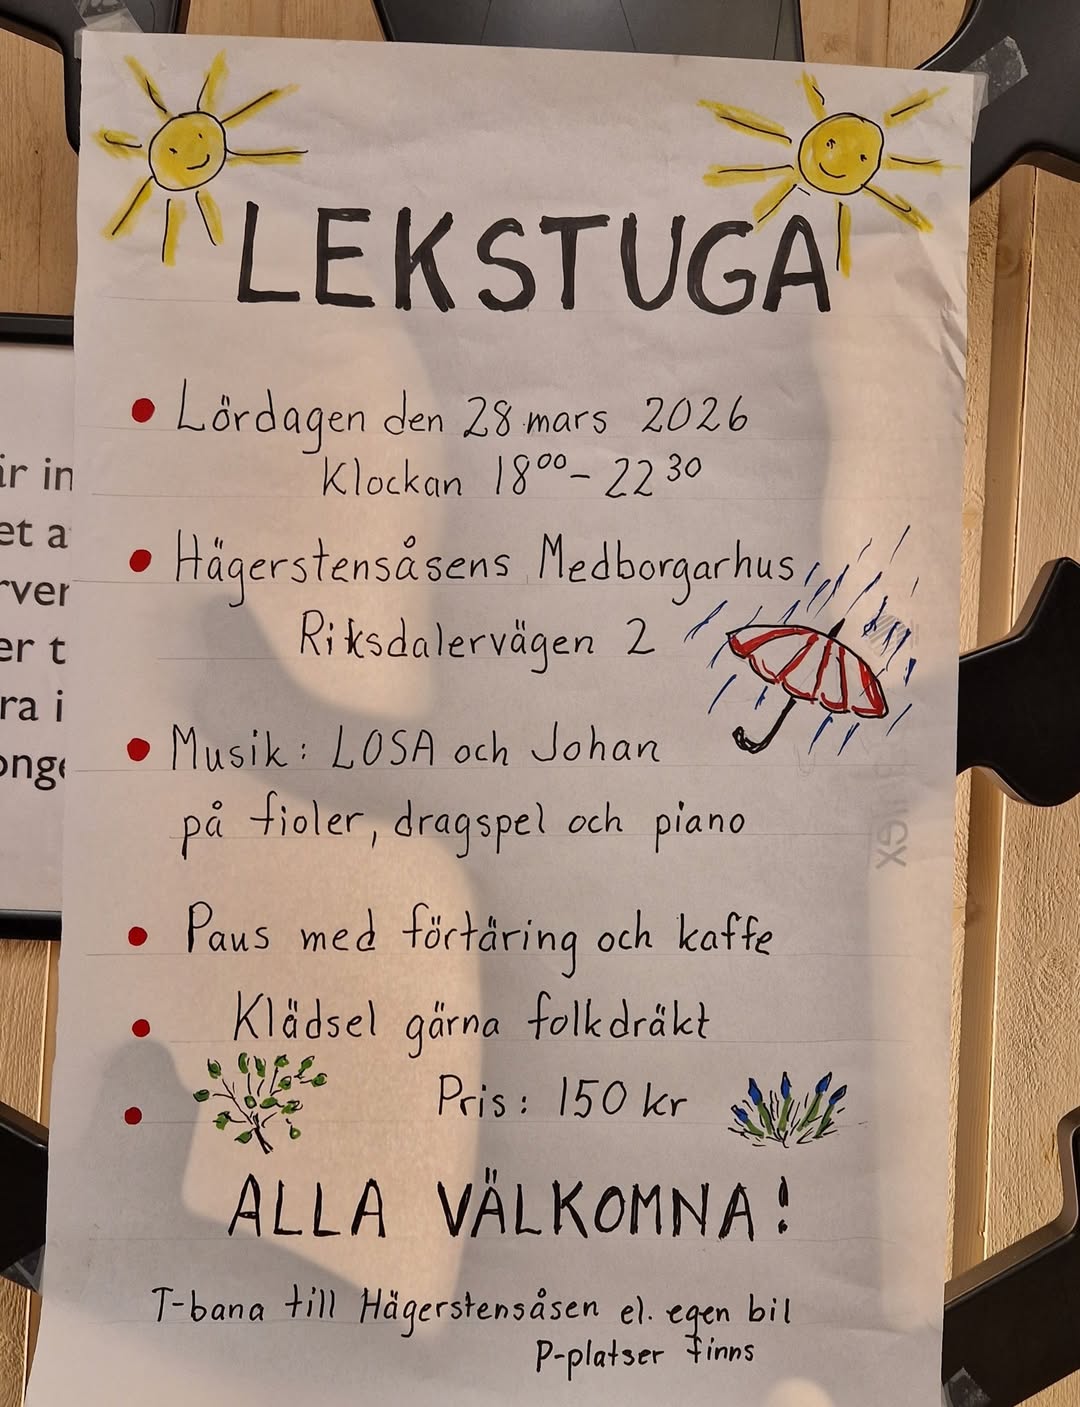 LEKSTUGA
Lördagen den 28 mars 2026
Klockan 18⁰⁰ – 22³⁰
Hägerstensåsens Medborgarhus
Riksdalervägen 2
Musik: LOSA och Johan
på fioler, dragspel och piano
Paus med förtäring och kaffe
Klädsel gärna folkdräkt
Pris: 150 kr
ALLA VÄLKOMNA!
T-bana till Hägerstensåsen el. egen bil
P-platser finns
är in
et a
rver
er t
ra i